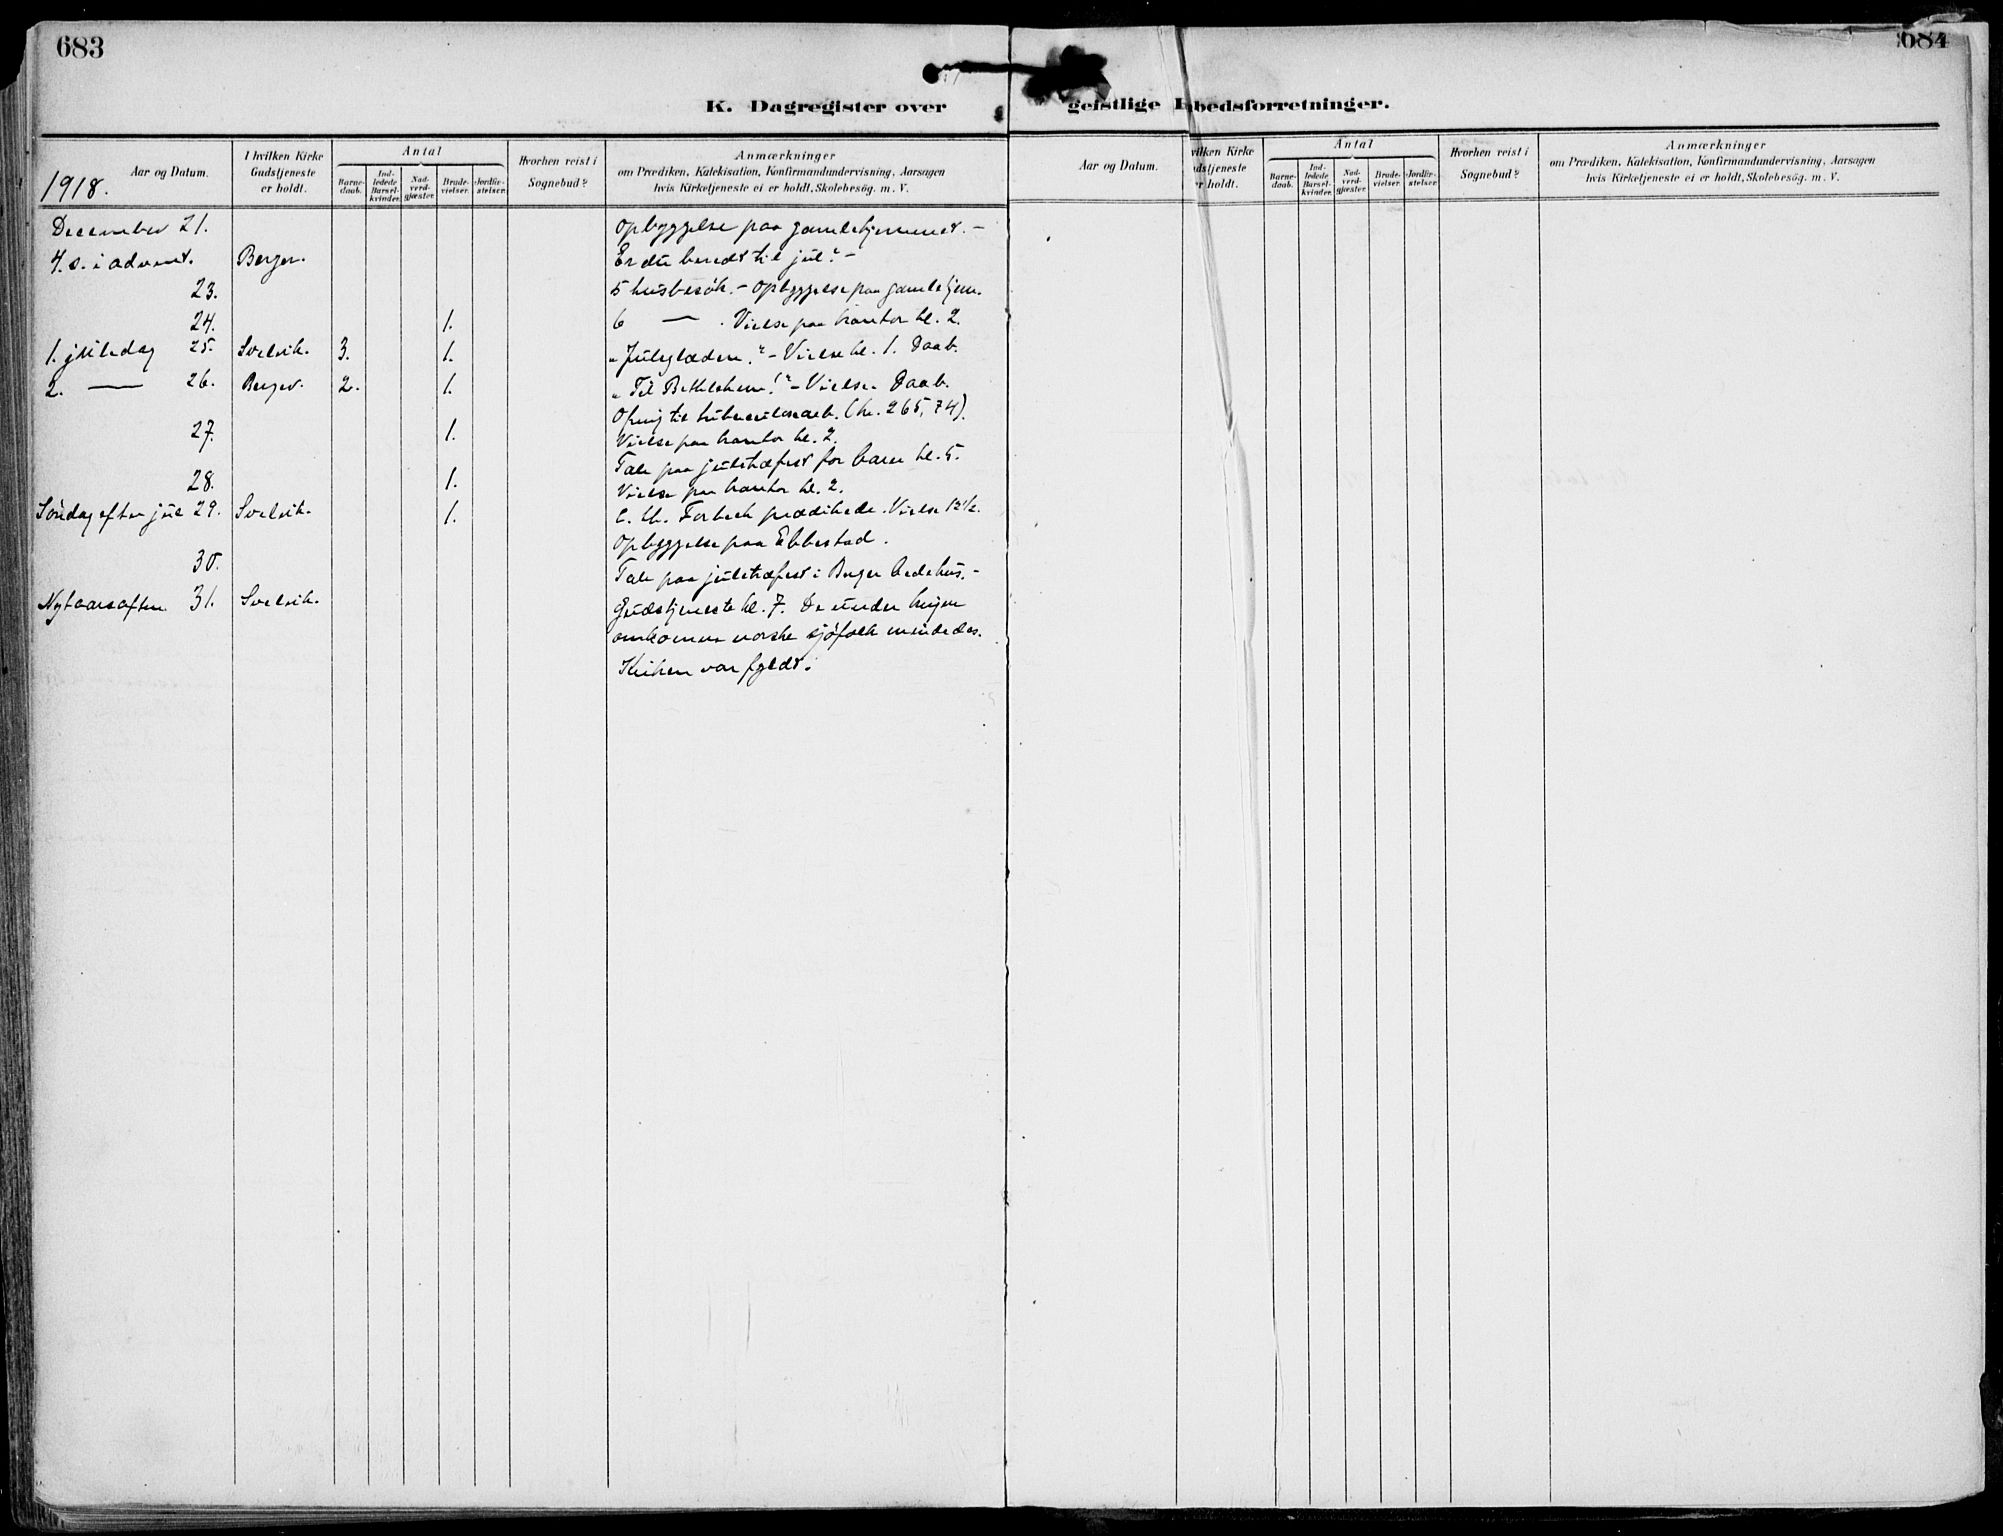 683
684
K. Dagregister over geistlige Embedsforretninger.
Aar og Datum.
I hvilken Kirke Gudstjeneste er holdt.
Antal
Barnedaab.
Indledede Barselkvinder.
Nadverdgjæster.
Brudevielser.
Jordfæstelser.
Hvorhen reist i Sognebud?
Anmærkninger
om Prædiken, Katekisation, Konfirmandundervisning, Aarsagen
hvis Kirketjeneste ei er holdt, Skolebesög. m. V.
1918.
December 21. Opbyggelse paa gamlehjemmet. -
4. s. i advent. Berger. Er du beredt til jul? -
23. 5 husbesök. - Opbyggelse paa gamlehjem.
24. 1. 6 — . Vielse paa kontor kl. 2.
1. juledag 25. Svelvik. 3. 1. "Juleglæden." - Vielse kl. 1. Daab.
2. — 26. Berger. 2. 1. "Til Bethlehem!" - Vielse. Daab.
Ofring til tuberkulosearb. (kr. 265,74).
27. 1. Vielse paa kontor kl. 2.
Tale paa juletræfest for barn kl. 5.
28. 1. Vielse paa kontor kl. 2.
Söndag efter jul 29. Svelvik. 1. c. th. Forbech prædikede. Vielse 12½.
Opbyggelse paa Ebbestad.
30. Tale paa juletræfest i Berger bedehus. -
Nytaarsaften 31. Svelvik. Gudstjeneste kl. 7. De under krigen
omkomne norske sjöfolk mindedes.
Kirken var fyldt.
Aar og Datum.
hvilken Kirke Gudstjeneste er holdt.
Antal
Barnedaab.
Indledede Barselkvinder.
Nadverdgjæster.
Brudevielser.
Jordfæstelser.
Hvorhen reist i Sognebud?
Anmærkninger
om Prædiken, Katekisation, Konfirmandundervisning, Aarsagen
hvis Kirketjeneste ei er holdt, Skolebesög. m. V.